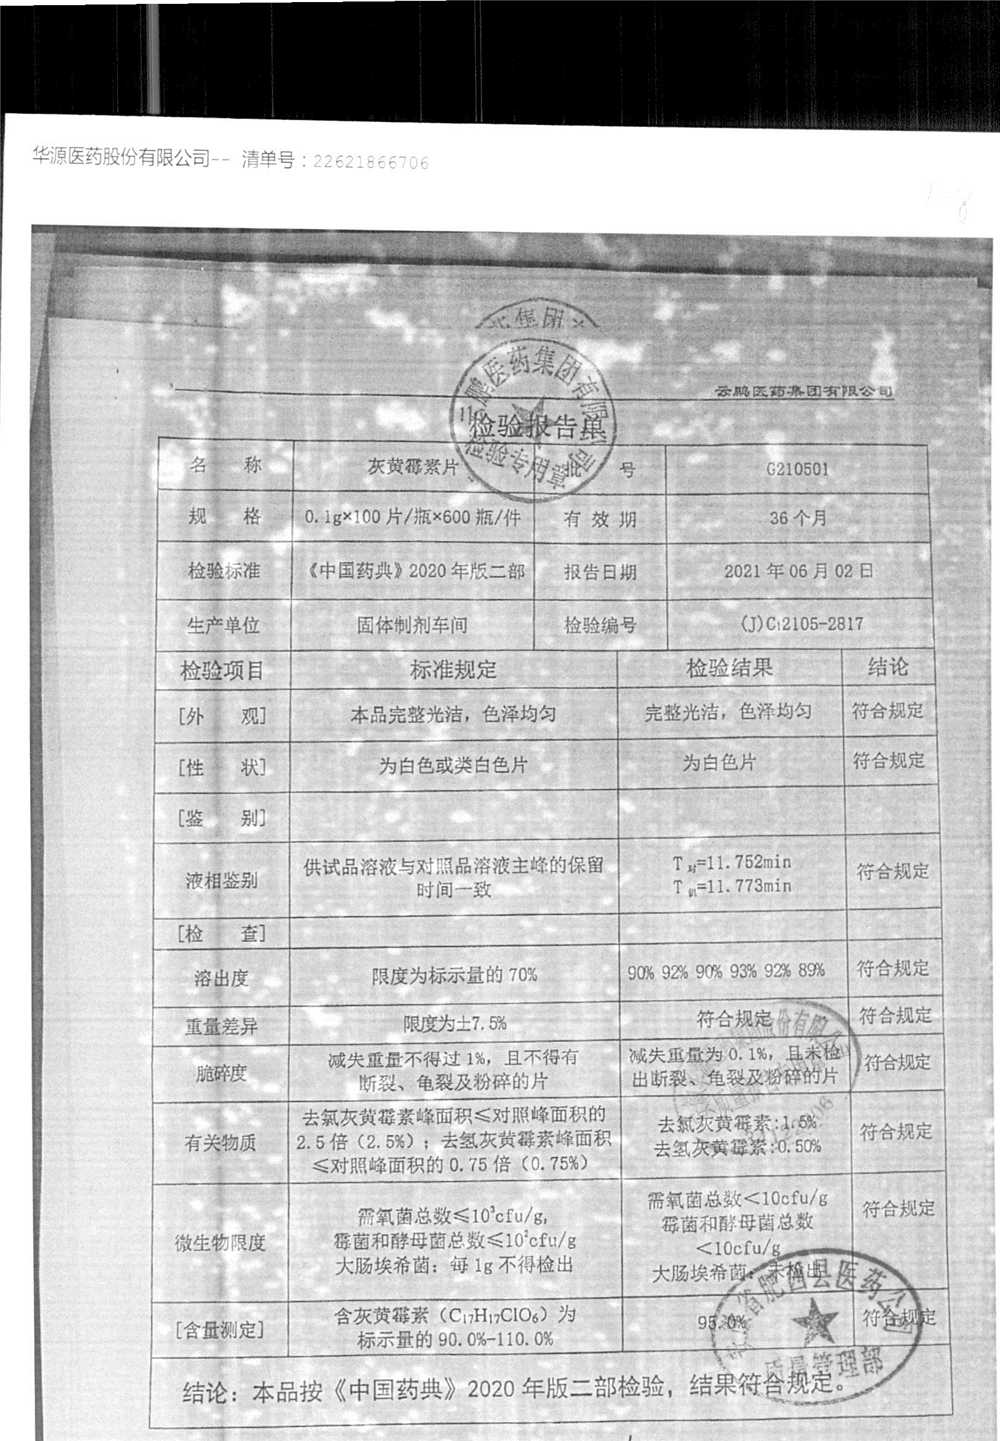 华源医药股份有限公司-- 清单号：22621866706
云鹏医药集团有限公司
检验报告单
名 称 灰黄霉素片 批 号 G210501
规 格 0.1g×100片/瓶×600瓶/件 有 效 期 36个月
检验标准 《中国药典》2020年版二部 报告日期 2021年06月02日
生产单位 固体制剂车间 检验编号 (J)C12105-2817
检验项目 标准规定 检验结果 结论
[外 观] 本品完整光洁，色泽均匀 完整光洁，色泽均匀 符合规定
[性 状] 为白色或类白色片 为白色片 符合规定
[鉴 别]
液相鉴别 供试品溶液与对照品溶液主峰的保留
时间一致
T对=11.752min
T供=11.773min
符合规定
[检 查]
溶出度 限度为标示量的70% 90% 92% 90% 93% 92% 89% 符合规定
重量差异 限度为±7.5% 符合规定 符合规定
脆碎度 减失重量不得过1%，且不得有
断裂、龟裂及粉碎的片
减失重量为0.1%，且未检
出断裂、龟裂及粉碎的片
符合规定
有关物质 去氯灰黄霉素峰面积≤对照峰面积的
2.5倍（2.5%）；去氢灰黄霉素峰面积
≤对照峰面积的0.75倍（0.75%）
去氯灰黄霉素:1.5%
去氢灰黄霉素:0.50%
符合规定
微生物限度 需氧菌总数≤10³cfu/g,
霉菌和酵母菌总数≤10²cfu/g
大肠埃希菌：每1g不得检出
需氧菌总数＜10cfu/g
霉菌和酵母菌总数
＜10cfu/g
大肠埃希菌：未检出
符合规定
[含量测定] 含灰黄霉素（C₁₇H₁₇ClO₆）为
标示量的90.0%-110.0%
95.0%
符合规定
结论：本品按《中国药典》2020年版二部检验，结果符合规定。
云鹏医药集团有限公司
检验专用章
安徽省肥西县医药公司
质量管理部